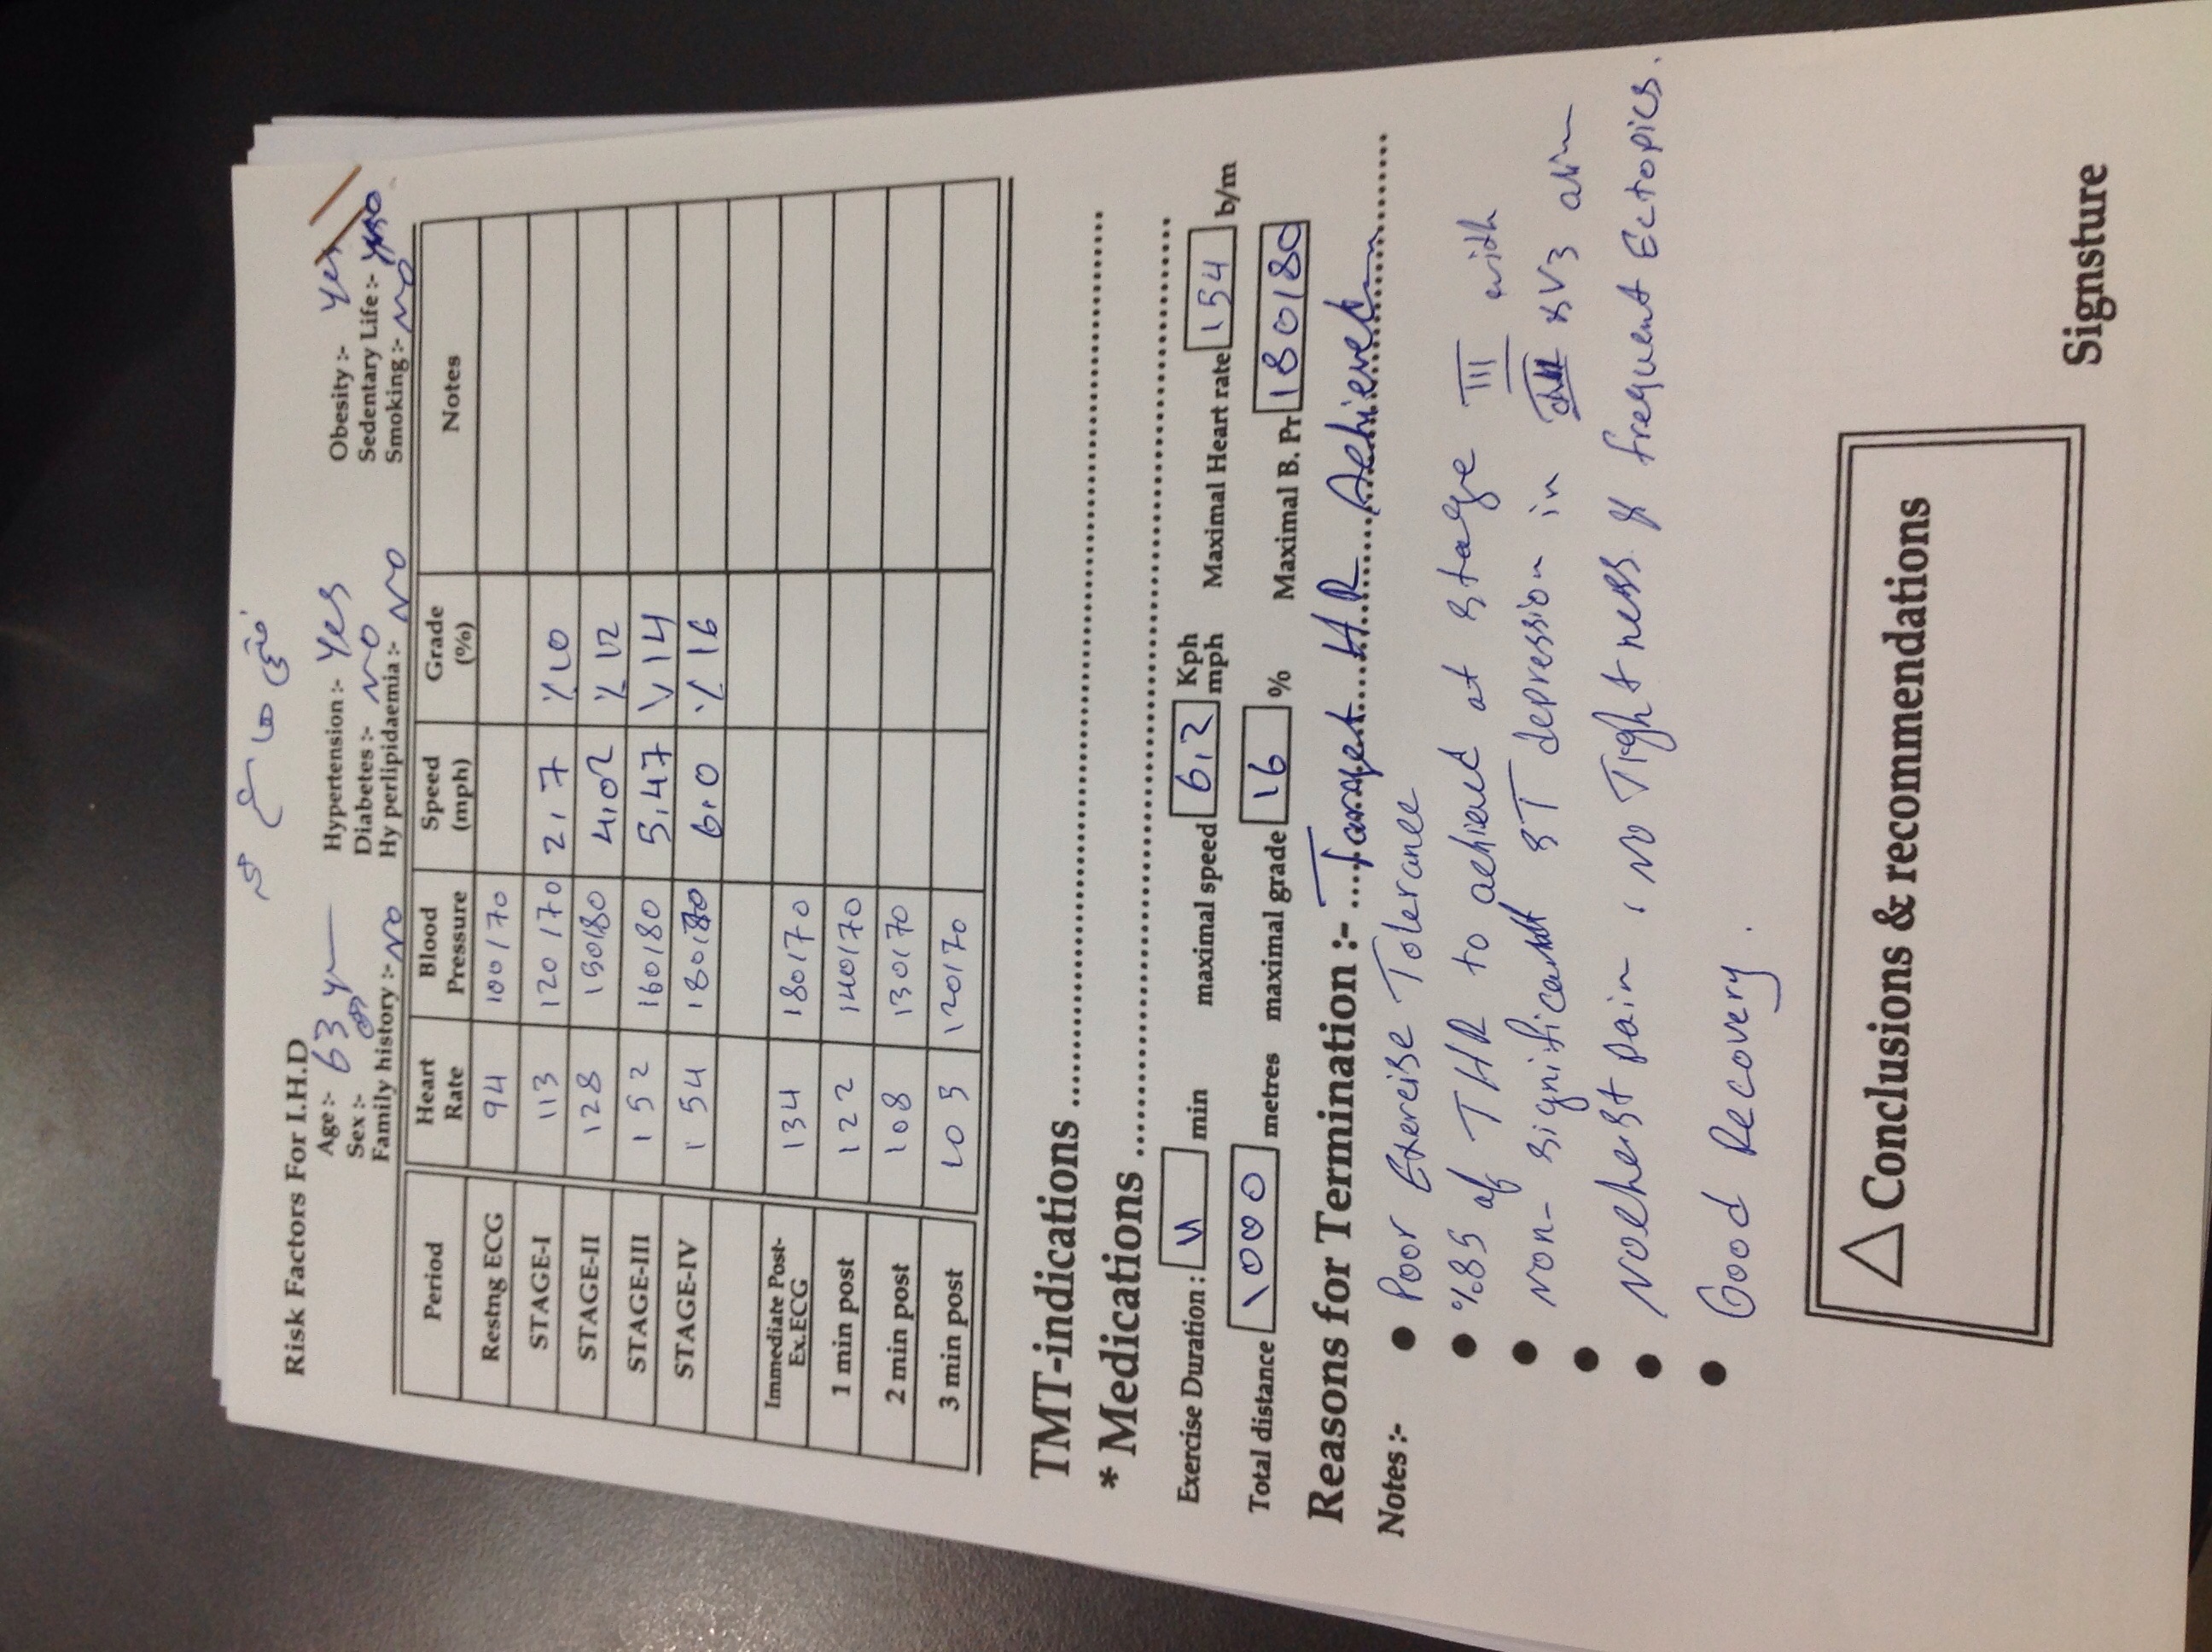 Risk Factors For I.H.D
Age :- 63 y Hypertension :- Yes Obesity :- Yes
Sex :- Diabetes :- NO Sedentary Life :-
Family history :- NO Hyperlipidaemia :- NO Smoking :- NO
Period Heart Rate Blood Pressure Speed (mph) Grade (%) Notes
Restng ECG 94 100/70
STAGE-I 113 120/70 2.7 %10
STAGE-II 128 150/80 4.02 % 12
STAGE-III 152 160/80 5.47 \ 14
STAGE-IV 154 180/80 6.0 % 16
Immediate Post-Ex.ECG 134 180/70
1 min post 122 140/70
2 min post 108 130/70
3 min post 105 120/70
TMT-indications
* Medications
Exercise Duration : min maximal speed 6.2 Kph mph Maximal Heart rate 154 b/m
Total distance 1000 metres maximal grade 16 % Maximal B. Pr 180/80
Reasons for Termination :- Target H.R Achieved
Notes :-
• Poor Exercise Tolerance
• %85 of THR to achieved at stage III with
• Non-significant ST depression in &V3 also
• No chest pain, No Tightness & frequent Ectopics.
• Good Recovery.
△ Conclusions & recommendations
Signsture